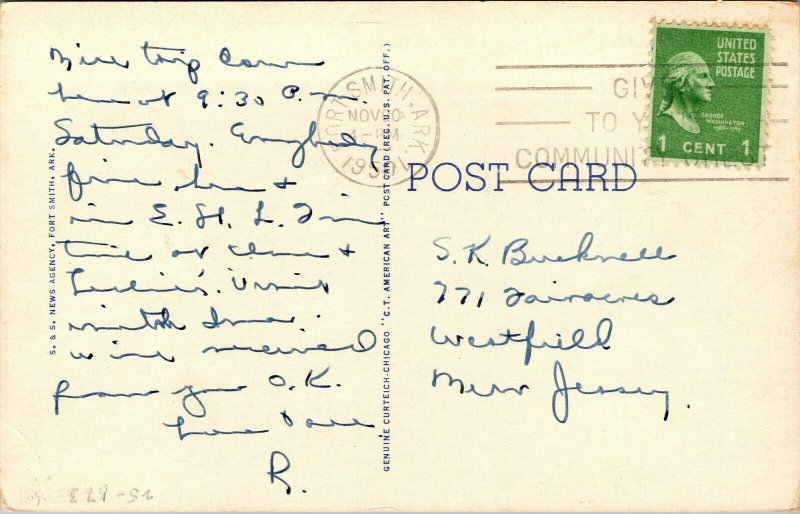 Nice trip Came
here at 9:30 P.m.
Saturday. Everybody
fine here &
in E. St. L. Fine
time at &
Leslie's. Visit
with Irma.
Wire received
from you O.K.
Love to all,
R.
S. & S. NEWS AGENCY, FORT SMITH, ARK.
GENUINE CURTEICH-CHICAGO "C.T. AMERICAN ART" POST CARD (REG. U.S. PAT. OFF.)
FORT SMITH, ARK.
NOV 20
4-PM
1951
GIVE
TO YOUR
COMMUNITY CHEST
UNITED
STATES
POSTAGE
GEORGE
WASHINGTON
1789-1797
1 CENT 1
POST CARD
S. K. Bucknell
771 Fairacres
Westfield
New Jersey.
828-52